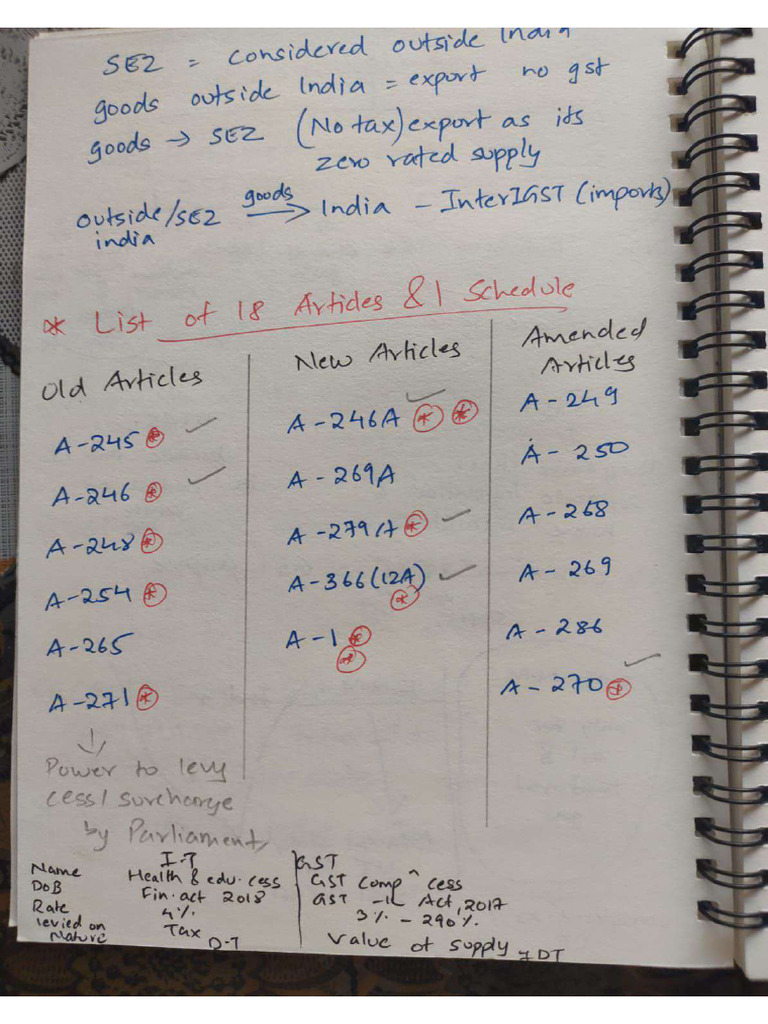 SEZ = considered outside India
goods outside India = export no gst
goods → SEZ (No tax) export as its
zero rated supply
outside/SEZ goods → India - Inter IGST (imports)
india
* List of 18 Articles & 1 Schedule
Old Articles
A-245 *
A-246 *
A-248 *
A-254 *
A-265
A-271 *
↓
Power to levy
cess/surcharge
by Parliament
New Articles
A-246A * *
A-269A
A-279A *
A-366(12A)
*
A-1 *
*
Amended
Articles
A-249
A-250
A-268
A-269
A-286
A-270 *
I-T
Name Health & edu. cess
DOB Fin. act 2018
Rate 4%
levied on Tax
Nature D-T
GST
GST Comp^ cess
GST Act, 2017
3% - 290%
Value of supply
IDT